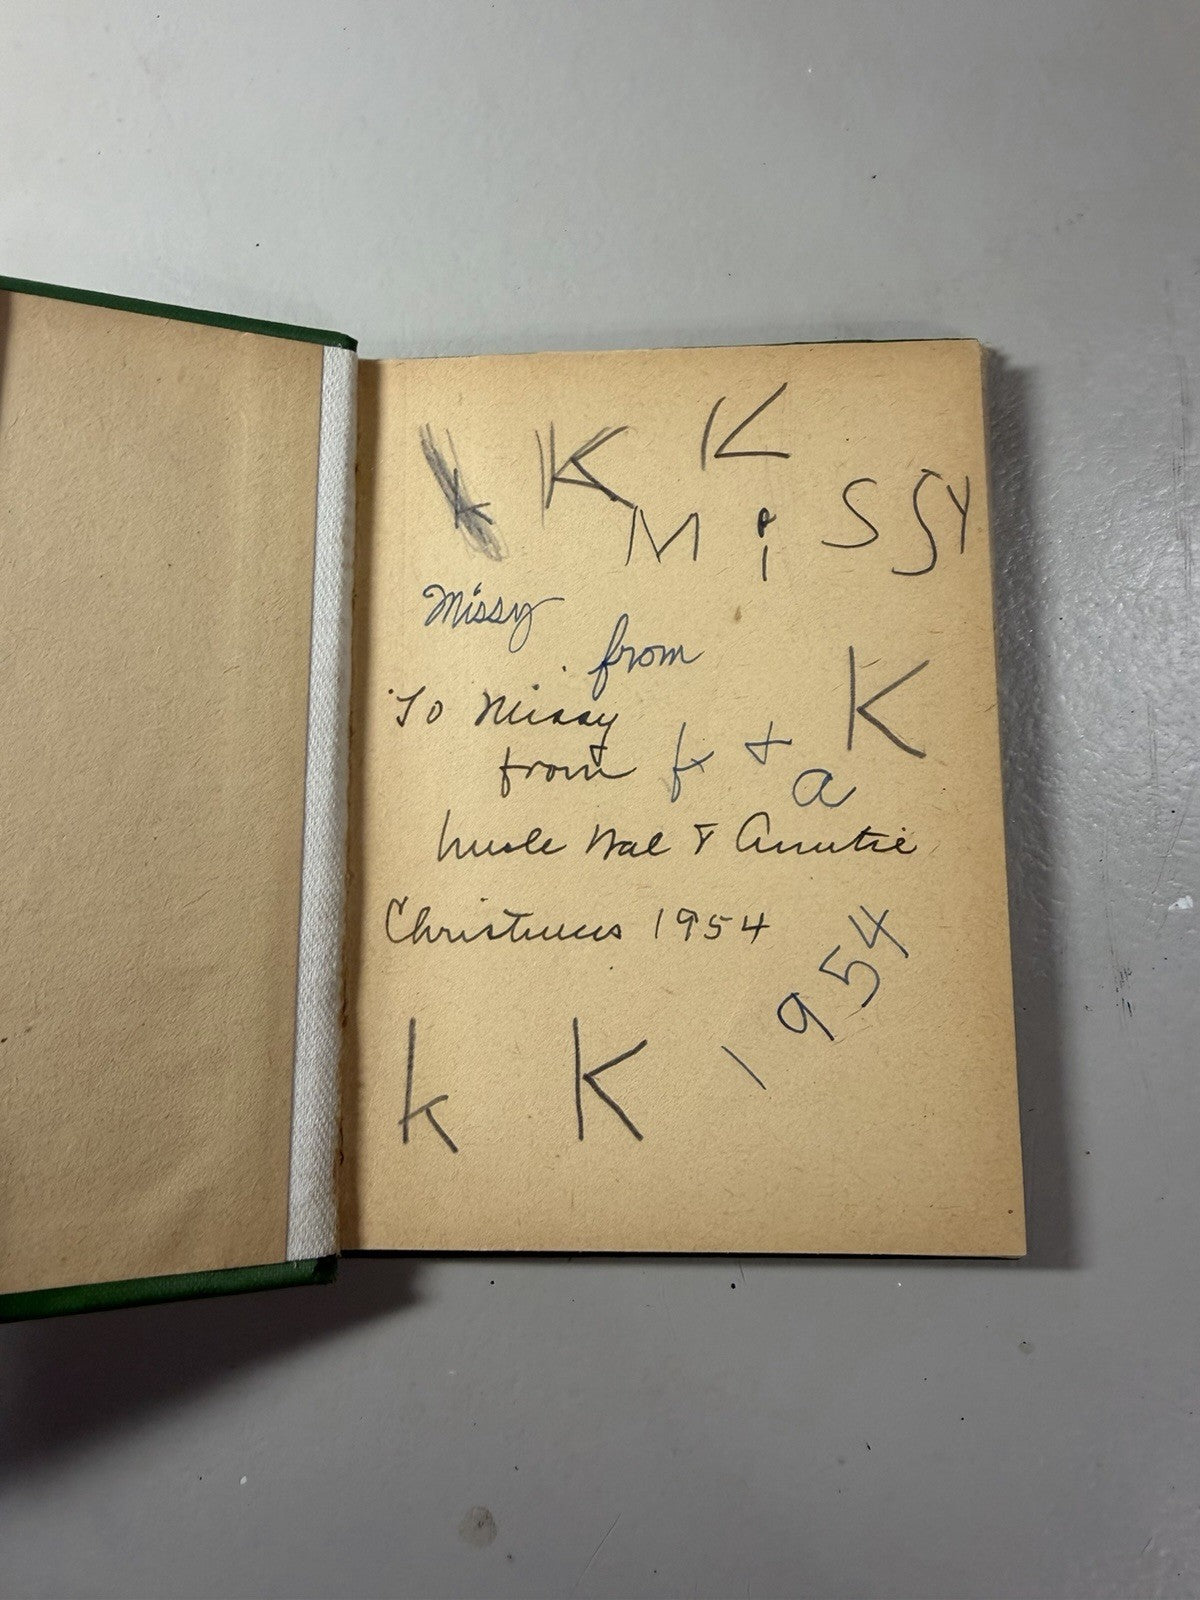 K K K
MiSSY
Missy
from
To Missy
K
from
f + a
Uncle Wal & Auntie
Christmas 1954
1954
k K